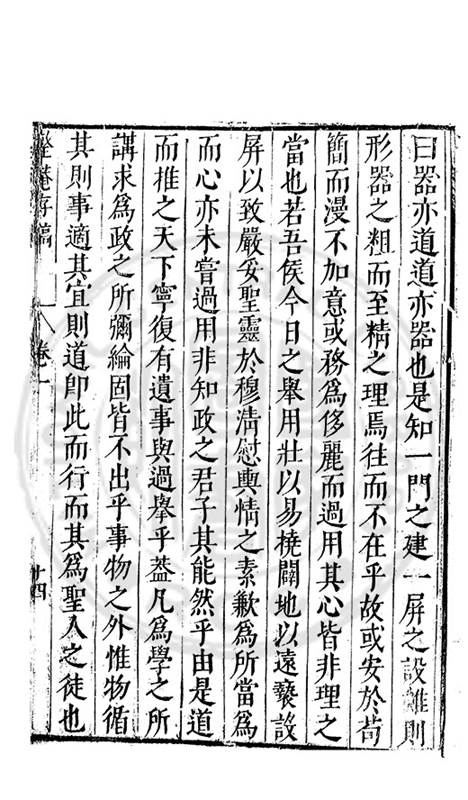 曰器亦道道亦器也是知一門之建一屏之設雖則
形器之粗而至精之理焉往而不在乎故或安於苟
簡而漫不加意或務爲侈麗而過用其心皆非理之
當也若吾侯今日之舉用壯以易橈闢地以遠褻設
屏以致嚴妥聖靈於穆清慰輿情之素歉爲所當爲
而心亦未嘗過用非知政之君子其能然乎由是道
而推之天下寧復有遺事與過舉乎葢凡爲學之所
講求爲政之所彌綸固皆不出乎事物之外惟物循
其則事適其宜則道卽此而行而其爲聖人之徒也
存稿 卷一 十四